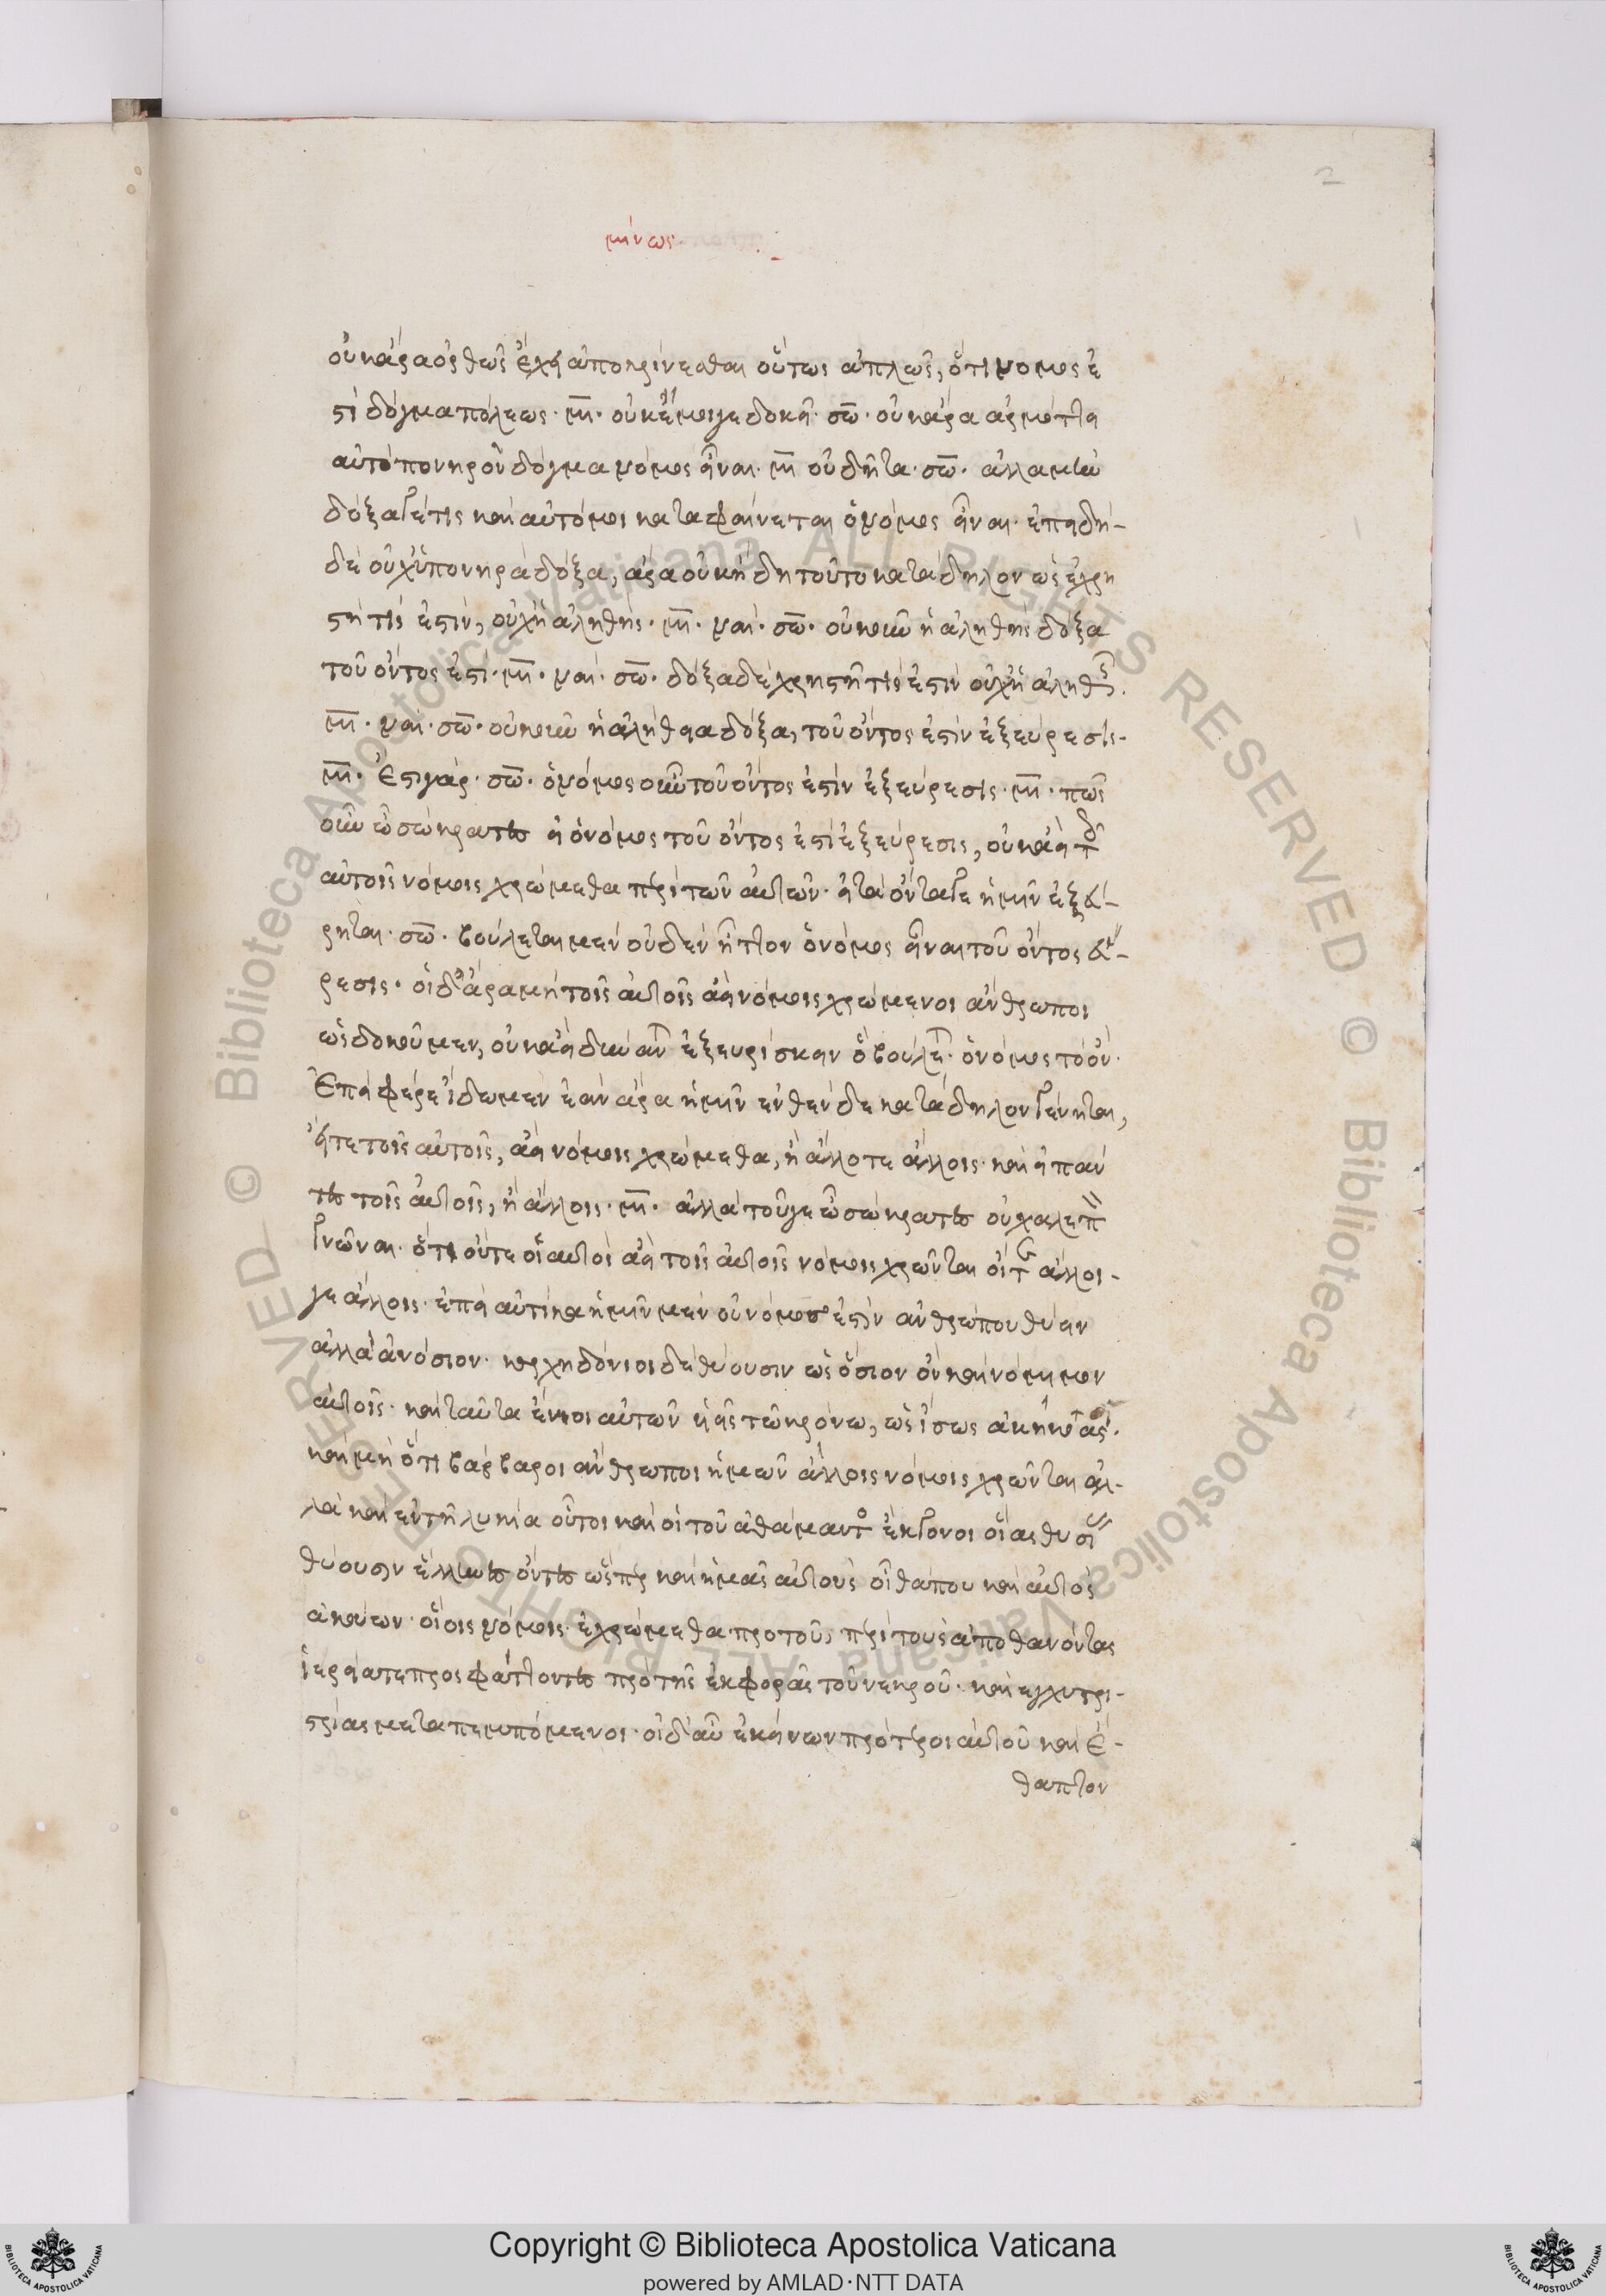 2
μίνως
οὐκ ἄρα ὀρθῶς ἔχει ἀποκρίνεσθαι οὕτως ἁπλῶς, ὅτι νόμος ἐ
στὶ δόγμα πόλεως· μι· οὐκ ἔμοιγε δοκεῖ· σω· οὐκ ἄρα ἁρμόττει
αὐτὸ πονηρὸν δόγμα νόμος εἶναι· μι οὐ δῆτα· σω· ἀλλὰ μὴν
δόξα γέ τις καὶ αὐτό μοι καταφαίνεται ὁ νόμος εἶναι· ἐπειδὴ-
δὲ οὐχ ἡ πονηρὰ δόξα, ἆρα οὐκ ἤδη τοῦτο κατάδηλον ὡς ἡ χρη
στή τίς ἐστιν, οὐχ ἡ ἀληθής· μι· ναί· σω· οὐκοῦν ἡ ἀληθὴς δόξα
τοῦ ὄντος ἐστί· μι· ναί· σω· δόξα δὲ χρηστὴ τίς ἐστιν οὐχ ἡ ἀληθής.
μι· ναί· σω· οὐκοῦν ἡ ἀλήθεια δόξα, τοῦ ὄντος ἐστὶν ἐξεύρεσις-
μι· ἔστι γάρ· σω· ὁ νόμος οὖν τοῦ ὄντος ἐστὶν ἐξεύρεσις· μι· πῶς
οὖν ὦ σώκρατες εἰ ὁ νόμος τοῦ ὄντος ἐστὶ ἐξεύρεσις, οὐκ ἀεὶ τοῖς
αὐτοῖς νόμοις χρώμεθα περὶ τῶν αὐτῶν· εἰ τὰ ὄντα γε ἡμῖν ἐξεύ-
ρηται· σω· βούλεται μὲν οὐδὲν ἧττον ὁ νόμος εἶναι τοῦ ὄντος εὕ-
ρεσις· οἱ δ' ἄρα μὴ τοῖς αὐτοῖς ἀεὶ νόμοις χρώμενοι ἄνθρωποι
ὡς δοκοῦμεν, οὐκ ἀεὶ δύνανται ἐξευρίσκειν ὃ βούλεται ὁ νόμος τὸ ὄν·
ἔπει φέρε ἴδωμεν ἐὰν ἄρα ἡμῖν ἐνθένδε κατάδηλον γένηται,
εἴτε τοῖς αὐτοῖς, ἀεὶ νόμοις χρώμεθα, ἢ ἄλλοτε ἄλλοις· καὶ εἰ πάν
τες τοῖς αὐτοῖς, ἢ ἄλλοις· μι· ἀλλὰ τοῦγε ὦ σώκρατες οὐ χαλεπὸν
γνῶναι· ὅτι οὔτε οἱ αὐτοὶ ἀεὶ τοῖς αὐτοῖς νόμοις χρῶνται οἵτε ἄλλοι-
γε ἄλλοις· ἐπεὶ αὐτίκα ἡμῖν μὲν οὐ νόμος ἐστὶν ἀνθρώπου θύειν
ἀλλὰ ἀνόσιον· καρχηδόνιοι δὲ θύουσιν ὡς ὅσιον ὂν καὶ νόμιμον
αὐτοῖς· καὶ ταῦτα ἔνιοι αὐτῶν υἱεῖς τῷ κρόνῳ, ὡς ἴσως ἀκήκοας.
καὶ μὴ ὅτι βάρβαροι ἄνθρωποι ἡμῶν ἄλλοις νόμοις χρῶνται ἀλ-
λὰ καὶ ἐν τῇ λυκία οὗτοι καὶ οἱ τοῦ ἀθάμαντος ἔκγονοι οἵας θυσίας
θύουσιν ἕλληνες ὄντες ὥσπερ καὶ ἡμᾶς αὐτοὺς οἶσθά που καὶ αὐτὸς
ἀκούων· οἵοις νόμοις ἐχρώμεθα πρὸ τοῦ, περὶ τοὺς ἀποθανόντας
ἱερεῖά τε προσφάττοντες πρὸ τῆς ἐκφορᾶς τοῦ νεκροῦ· καὶ ἐγχυτρι-
στρίας μεταπεμπόμενοι· οἱ δ' αὖ ἐκείνων πρότεροι αὐτοῦ καὶ ἔ-
θαπτον
Copyright © Biblioteca Apostolica Vaticana
powered by AMLAD·NTT DATA
BIBLIOTECA APOSTOLICA VATICANA
BIBLIOTECA APOSTOLICA VATICANA
© Biblioteca Apostolica Vaticana ALL RIGHTS RESERVED
© Biblioteca Apostolica Vaticana ALL RIGHTS RESERVED